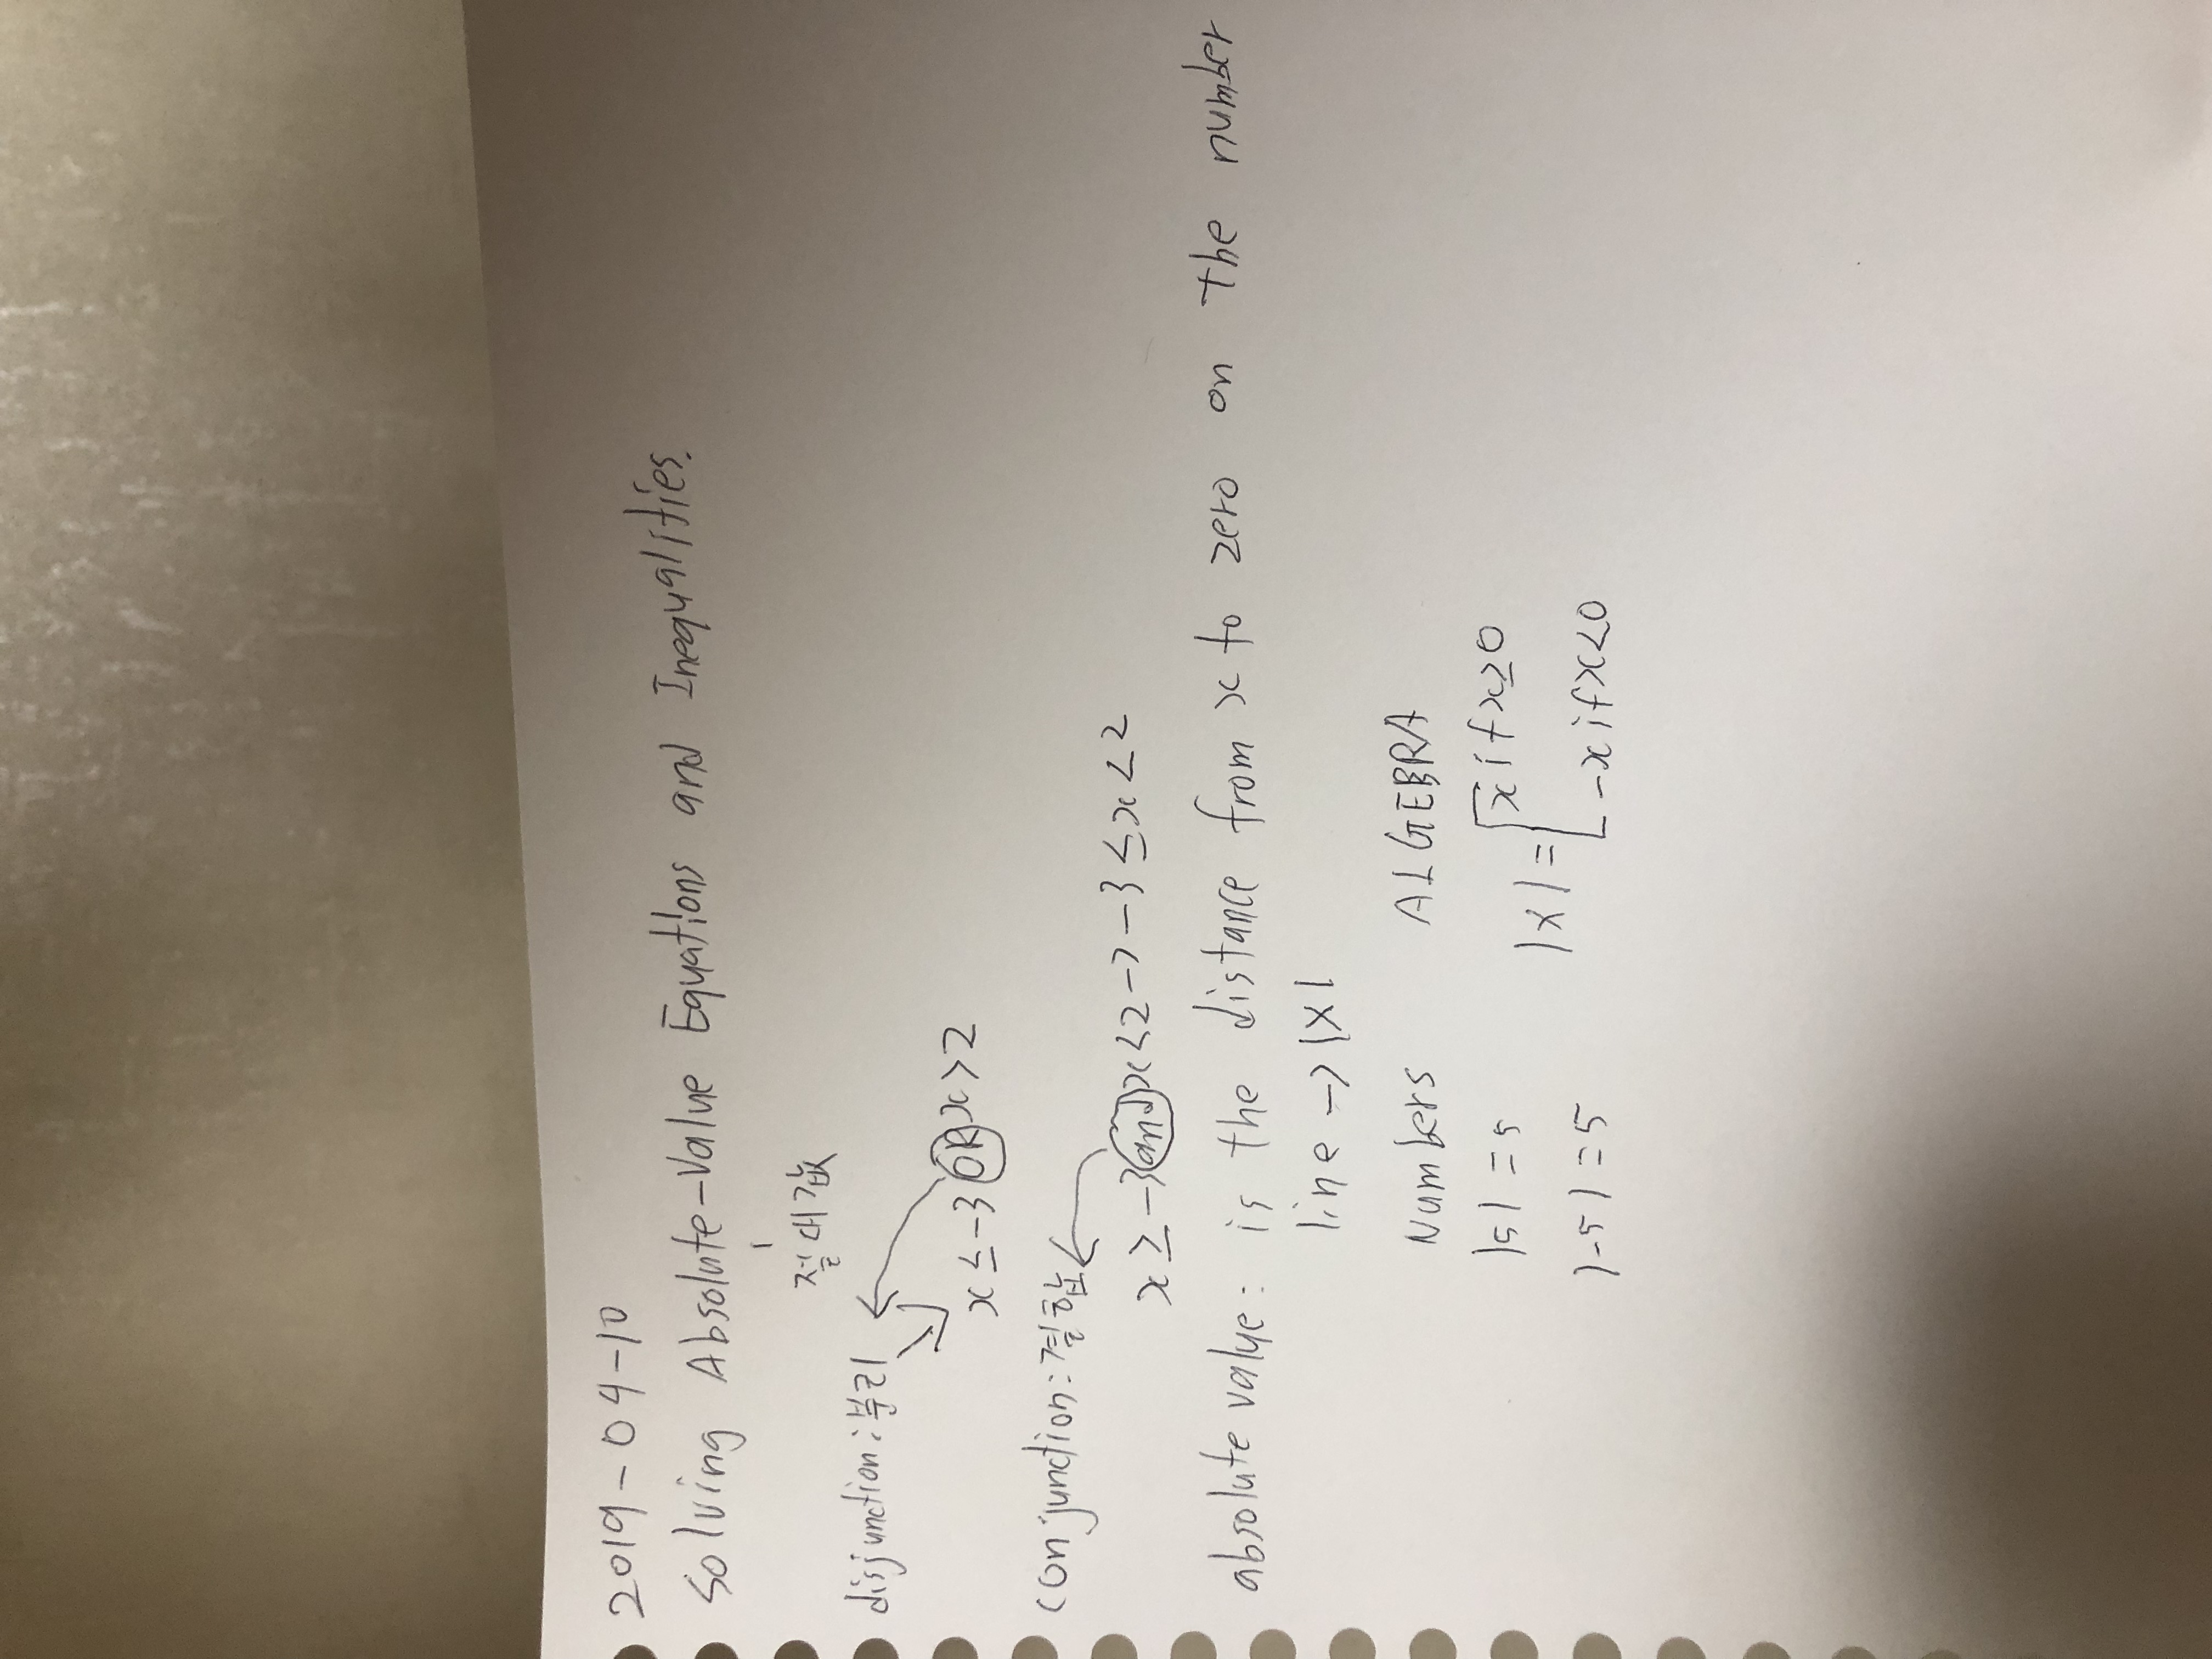 2019-04-10
Solving Absolute-Value Equations and Inequalities.
절대값
disjunction:분리
x≤-3 OR x>2
conjunction:결합
x≥-3 and x<2->-3≤x<2
absolute value: is the distance from x to zero on the number
line->|x|
Numbers ALGEBRA
|5|=5 |x|=[x if x≥0
|-5|=5 -x if x<0